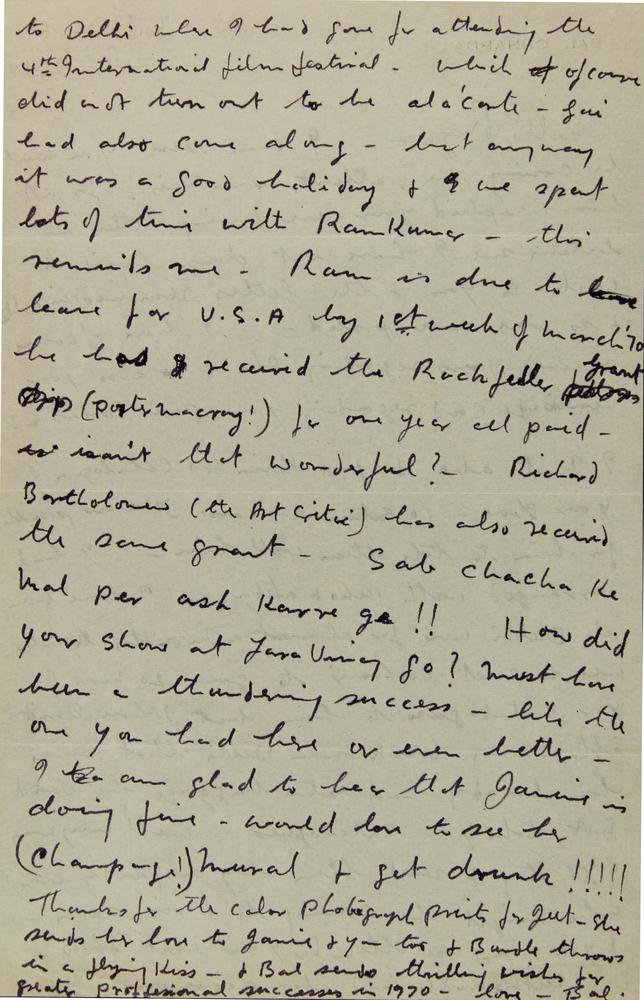 to Delhi where I had gone for attending the
4th International film festival - which of ofcourse
did not turn out to be ala'carte - Gai
had also come along - but anyway
it was a good holiday & we spent
lots of time with RamKumar - this
reminds me - Ram is due to leave
leave for U.S.A by 1st week of March '70
he had received the Rockfeller grant
ship (                ) for one year all paid -
isn't that wonderful? - Richard
Bartholomew (the Art Critic) has also received
the same grant - Sab chacha Ke
mal per ash Karre ge !! How did
your show at                go? must have
been a thundering success - like the
one you had here or even better -
I am glad to hear that Janine is
doing fine - would love to see her
(Champange!) mural & get drunk !!!!!
Thanks for the color photograph prints for Jeet - she
sends her love to Janine & you too & Bundle throws
in a flying kiss - & Bal sends thrilling wishes for
greater professional successes in 1970 - love Bal.